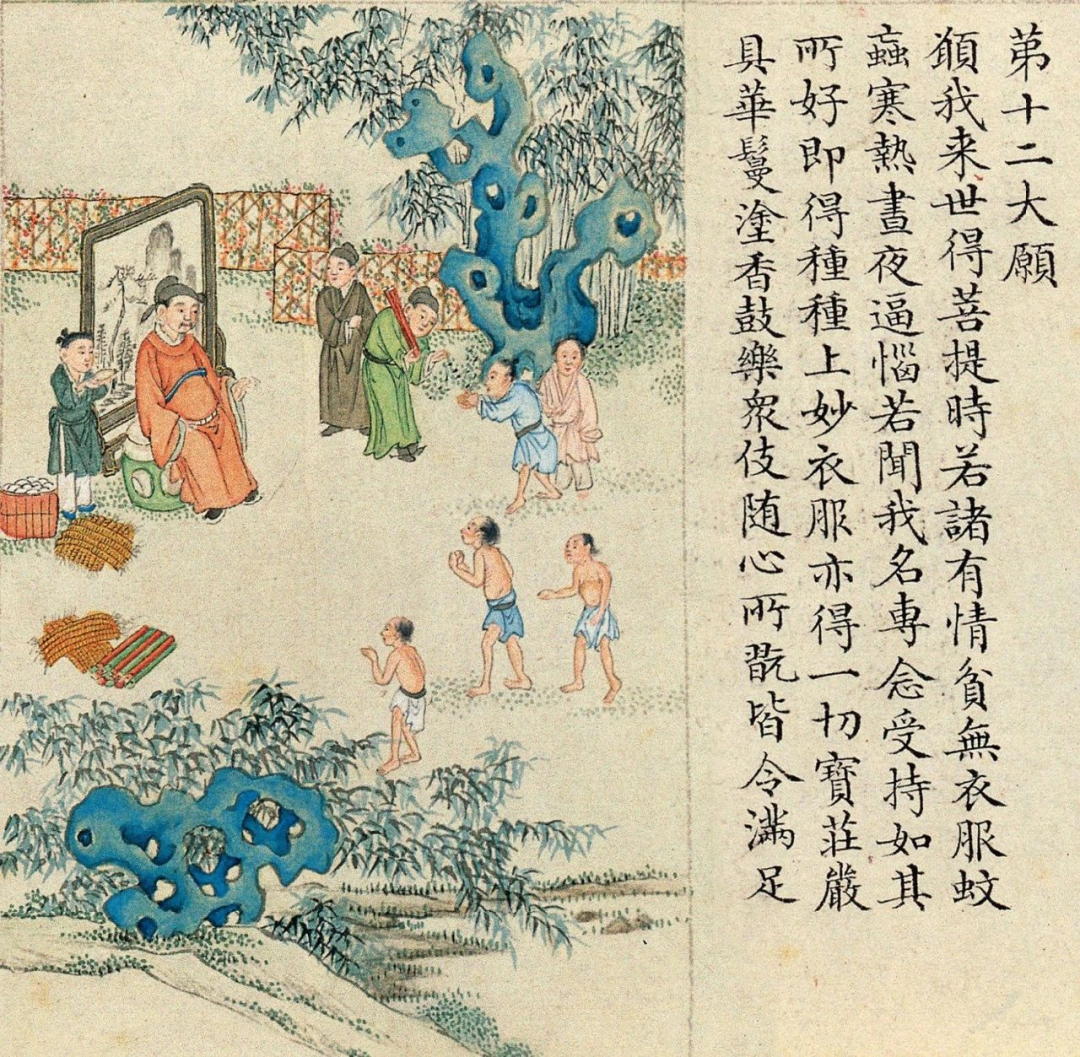 苐十二大願
願我来世得菩提時若諸有情貧無衣服蚊
蝱寒熱晝夜逼惱若聞我名專念受持如其
所好即得種種上妙衣服亦得一切寶莊嚴
具華鬘塗香鼓樂眾伎随心所翫皆令滿足